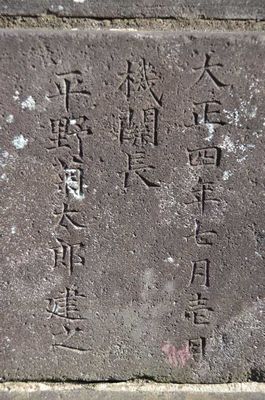 大正四年七月壱日
機関長
平野菊太郎建之